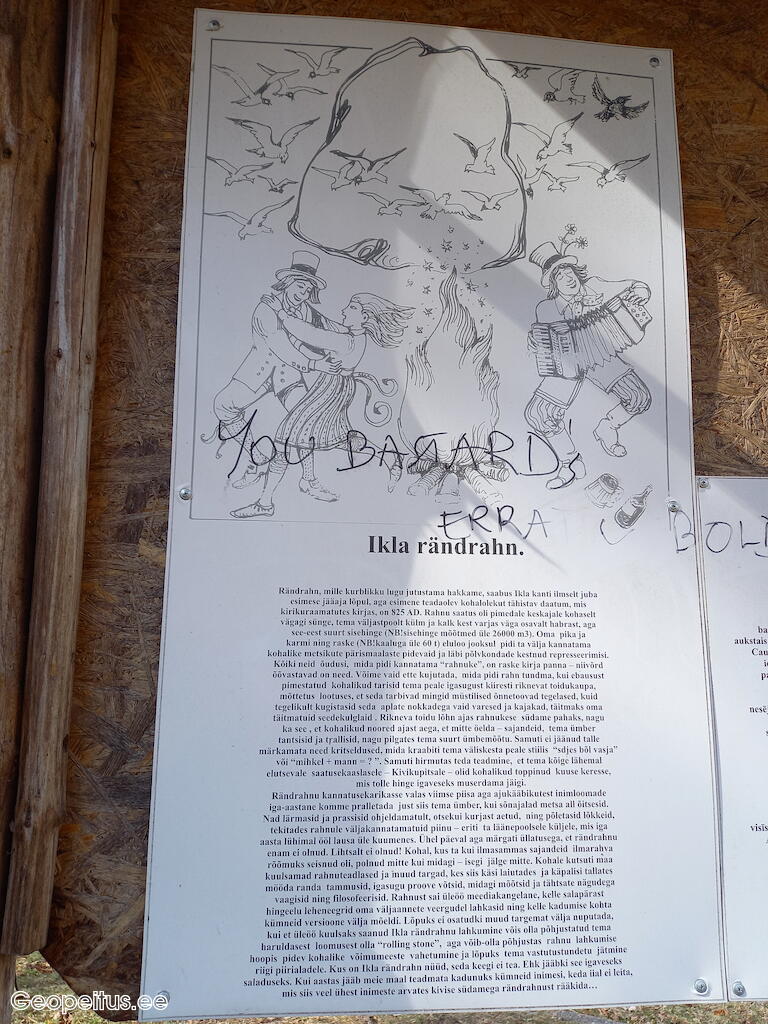 YOU BAЯARD,
ERRAT BOLD
Ikla rändrahn.
Rändrahn, mille kurblikku lugu jutustama hakkame, saabus Ikla kanti ilmselt juba
esimese jääaja lõpul, aga esimene teadaolev kohalolekut tähistav daatum, mis
kirikuraamatutes kirjas, on 825 AD. Rahnu saatus oli pimedale keskajale kohaselt
vägagi sünge, tema väljastpoolt külm ja kalk kest varjas väga osavalt habrast, aga
see-eest suurt sisehinge (NB!sisehinge mõõtmed üle 26000 m3). Oma pika ja
karmi ning raske (NB!kaaluga üle 60 t) eluloo jooksul pidi ta välja kannatama
kohalike metsikute pärismaalaste pidevaid ja läbi põlvkondade kestnud represseerimisi.
Kõiki neid õudusi, mida pidi kannatama "rahnuke", on raske kirja panna – niivõrd
õõvastavad on need. Võime vaid ette kujutada, mida pidi rahn tundma, kui ebausust
pimestatud kohalikud tarisid tema peale igasugust kiiresti riknevat toidukaupa,
mõttetus lootuses, et seda tarbivad mingid müstilised õnnetoovad tegelased, kuid
tegelikult kugistasid seda aplate nokkadega vaid varesed ja kajakad, täitmaks oma
täitmatuid seedekulglaid . Rikneva toidu lõhn ajas rahnukese südame pahaks, nagu
ka see , et kohalikud noored ajast aega, et mitte öelda – sajandeid, tema ümber
tantsisid ja trallisid, nagu pilgates tema suurt ümbemõõtu. Samuti ei jäänud talle
märkamata need kritseldused, mida kraabiti tema väliskesta peale stiilis "sdjes bõl vasja"
või "mihkel + mann = ? ". Samuti hirmutas teda teadmine, et tema kõige lähemal
elutsevale saatusekaaslasele – Kivikupitsale – olid kohalikud toppinud kuuse keresse,
mis tolle hinge igaveseks muserdama jäigi.
Rändrahnu kannatusekarikasse valas viimse piisa aga ajukääbikutest inimloomade
iga-aastane komme pralletada just siis tema ümber, kui sõnajalad metsa all õitsesid.
Nad lärmasid ja prassisid ohjeldamatult, otsekui kurjast aetud, ning põletasid lõkkeid,
tekitades rahnule väljakannatamatuid piinu – eriti ta läänepoolsele küljele, mis iga
aasta lühimal ööl lausa üle kuumenes. Ühel päeval aga märgati üllatusega, et rändrahnu
enam ei olnud! Lihtsalt ei olnud! Kohal, kus ta kui ilmasammas sajandeid ilmarahva
rõõmuks seisnud oli, polnud mitte kui midagi – isegi jälge mitte. Kohale kutsuti maa
kuulsamad rahnuteadlased ja muud targad, kes siis käsi laiutades ja käpalisi tallates
mööda randa tammusid, igasugu proove võtsid, midagi mõõtsid ja tähtsate nägudega
vaagisid ning filosofeerisid. Rahnust sai üleöö meediakangelane, kelle salapärast
hingeelu leheneegrid oma väljaannete veergudel lahkasid ning kelle kadumise kohta
kümneid versioone välja mõeldi. Lõpuks ei osatudki muud targemat välja nuputada,
kui et üleöö kuulsaks saanud Ikla rändrahnu lahkumine võis olla põhjustatud tema
haruldasest loomusest olla "rolling stone", aga võib-olla põhjustas rahnu lahkumise
hoopis pidev kohalike võimumeeste vahetumine ja lõpuks tema vastutustundetu jätmine
riigi piirialadele. Kus on Ikla rändrahn nüüd, seda keegi ei tea. Ehk jääbki see igaveseks
saladuseks. Kui aastas jääb meie maal teadmata kadunuks kümneid inimesi, keda iial ei leita,
mis siis veel ühest inimeste arvates kivise südamega rändrahnust rääkida…
ba
aukstais
Cau
nesē
visis
Geopeitus.ee